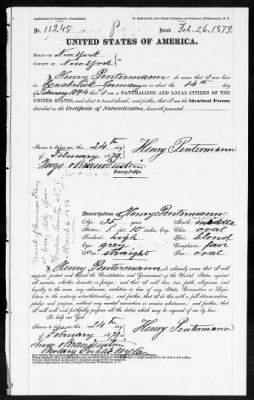 No. 11245
Issued Feb. 26, 1879.
UNITED STATES OF AMERICA.
STATE OF New York
COUNTY OF New York
I, Henry Pentermann do swear that I was born
in Germany on or about the 14th day
of February 1844 that I am a NATURALIZED AND LOYAL CITIZEN OF THE
UNITED STATES, and about to travel abroad; and further, that I am the Identical Person
described in the Certificate of Naturalization, herewith presented.
Sworn to before me, this 24th day
of February 1879
Henry Pentermann
Notary Public.
Description of Henry Pentermann
Age: 35 years
Mouth: middle
Stature: 5 ft. 10 inches, Eng.
Chin: oval
Forehead: high
Hair: blond
Eyes: grey
Complexion: fair
Nose: straight
Face: oval
I, Henry Pentermann do solemnly swear that I will
support, protect and defend the Constitution and Government of the United States
against all enemies, whether domestic or foreign; and that I will bear true faith, allegiance, and
loyalty to the same, any ordinance, resolution or law of any State, Convention or Legislature
to the contrary notwithstanding; and further, that I do this with a full determination,
pledge and purpose, without any mental reservation or evasion whatsoever; and further, that
I will well and faithfully perform all the duties which may be required of me by law.
So help me God.
Sworn to before me, this 24th day
of February 1879
Henry Pentermann
Notary Public